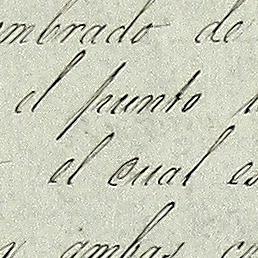 mbrado de
el punto
el cual es
y ambas